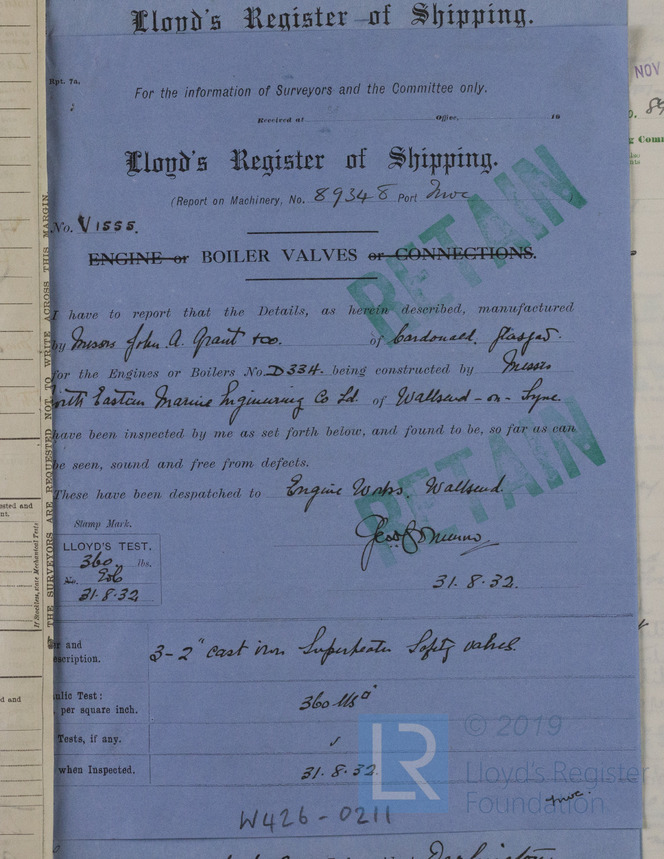 Lloyd's Register of Shipping.
Rpt. 7a.
For the information of Surveyors and the Committee only.
Received at Office, 19
Lloyd's Register of Shipping.
(Report on Machinery, No. 89348 Port Nwc )
No. V1555.
ENGINE or BOILER VALVES or CONNECTIONS.
I have to report that the Details, as herein described, manufactured
by Messrs John A. Grant & Co. of Cardonald, Glasgow.
for the Engines or Boilers No. D334. being constructed by Messrs
North Eastern Marine Engineering Co Ld. of Wallsend-on-Tyne.
have been inspected by me as set forth below, and found to be, so far as can
be seen, sound and free from defects.
These have been despatched to Engine Works, Wallsend.
Stamp Mark.
LLOYD'S TEST.
360 lbs.
No.
31.8.32
31.8.32.
THE SURVEYORS ARE REQUESTED NOT TO WRITE ACROSS THIS MARGIN.
If Steelten, state Mechanical Tests
RETAIN
RETAIN
er and
escription.
3-2" cast iron Superheater Safety valves.
ulic Test:
per square inch.
360 lbs □"
Tests, if any.
when Inspected.
31.8.32.
Nwc.
W426-0211
LR
© 2019
Lloyd's Register
Foundation
NOV
Darlington